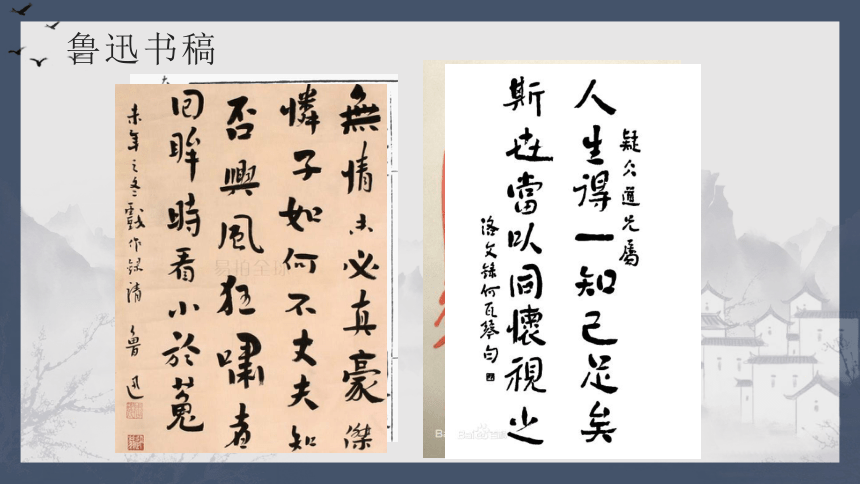 鲁迅书稿
無情未必真豪傑
憐子如何不丈夫知
否興風狂嘯者
回眸時看小於菟
未年之冬戲作錄請
魯迅
易拍全球
疑仌道兄屬
人生得一知己足矣
斯世當以同懷視之
洛文錄何瓦琴句